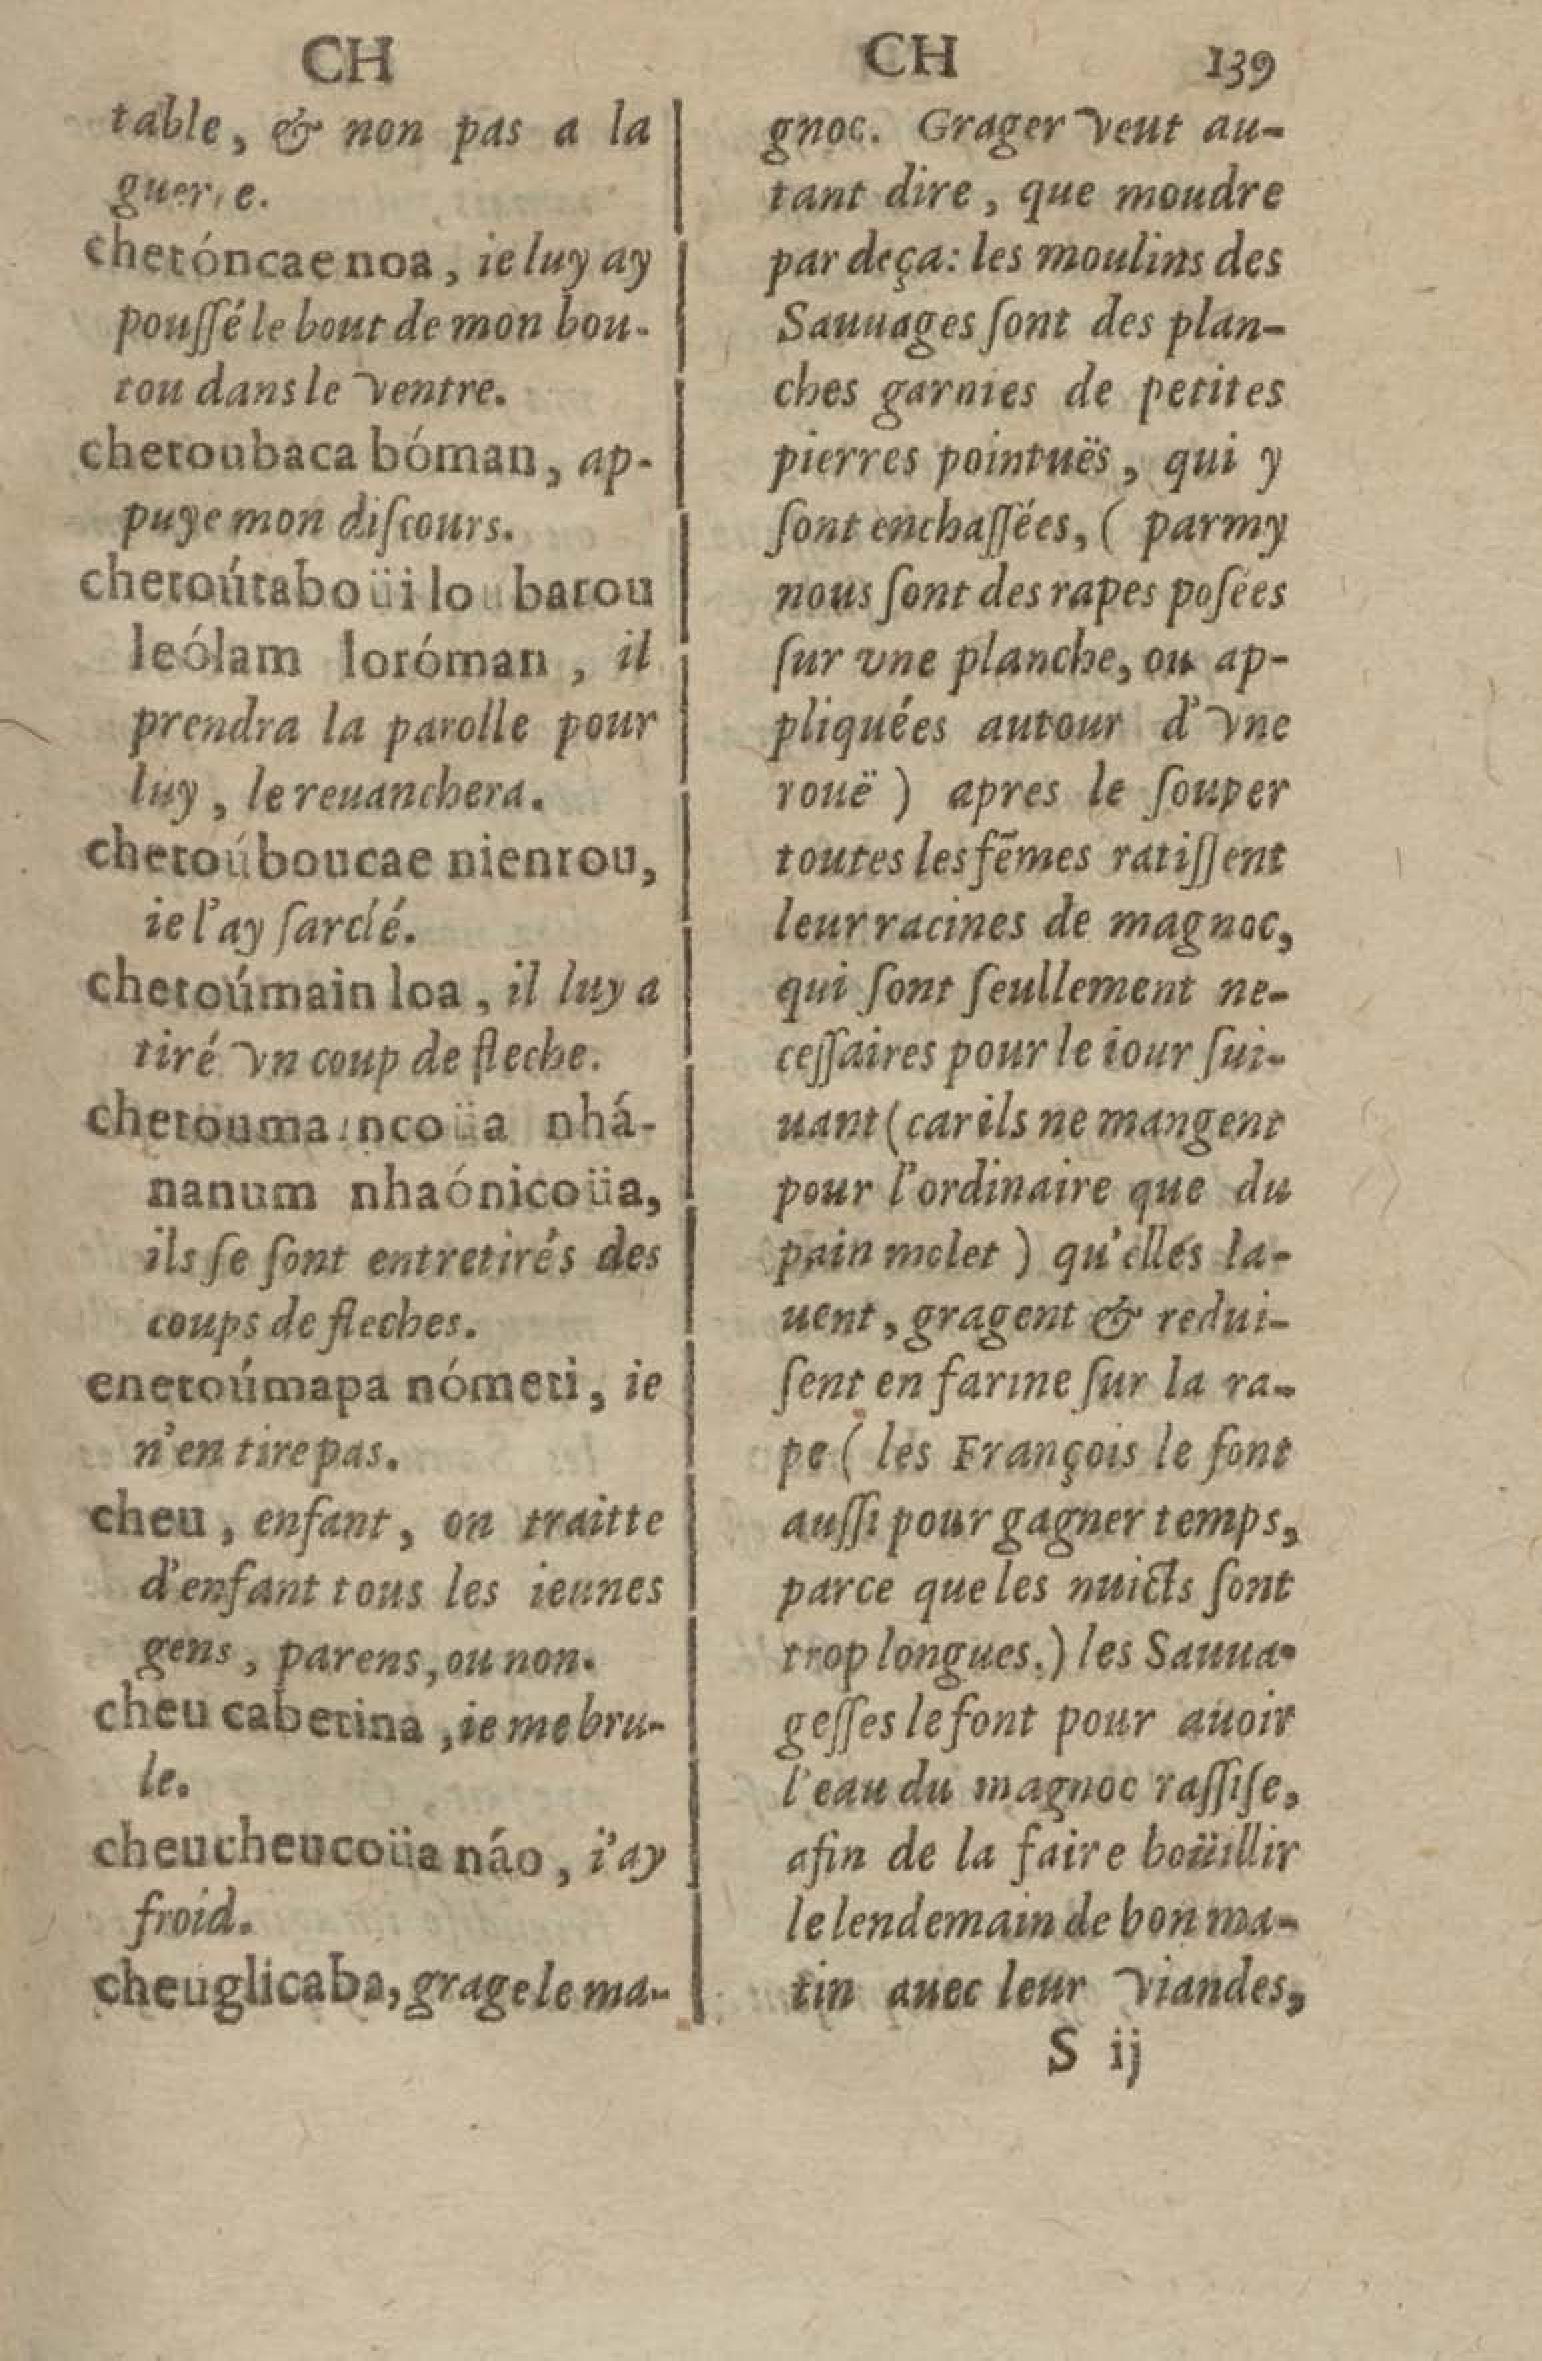 CH
table, & non pas a la
guerre.
chetóncae noa, ie luy ay
poussé le bout de mon bou-
tou dans le ventre.
chetoubaca bóman, ap-
puye mon discours.
chetoútaboüi lou batou
leólam loróman, il
prendra la parolle pour
luy, le reuanchera.
chetoúboucae nientou,
ie l'ay sarclé.
chetoúmain loa, il luy a
tiré vn coup de fleche.
chetoumaincoüa nhá-
nanum nhaónicoüa,
ils se sont entretirés des
coups de fleches.
enetoúmapa nómeti, ie
n'en tire pas.
cheu, enfant, on traitte
d'enfant tous les ieunes
gens, parens, ou non.
cheu cabetina, ie me bru-
le.
cheucheucoüa náo, i'ay
froid.
cheuglicaba, grage le ma-
CH 139
gnoc. Grager veut au-
tant dire, que moudre
par deça: les moulins des
Sauuages sont des plan-
ches garnies de petites
pierres pointuës, qui y
sont enchassées, ( parmy
nous sont des rapes posées
sur vne planche, ou ap-
pliquées autour d'vne
rouë ) apres le souper
toutes les fẽmes ratissent
leur racines de magnoc,
qui sont seullement ne-
cessaires pour le iour sui-
uant ( car ils ne mangent
pour l'ordinaire que du
pain molet ) qu'elles la-
uent, gragent & redui-
sent en farine sur la ra-
pe ( les François le font
aussi pour gagner temps,
parce que les nuicts sont
trop longues.) les Sauua-
gesses le font pour auoir
l'eau du magnoc rassise,
afin de la faire boüillir
le lendemain de bon ma-
tin auec leur viandes,
S ij